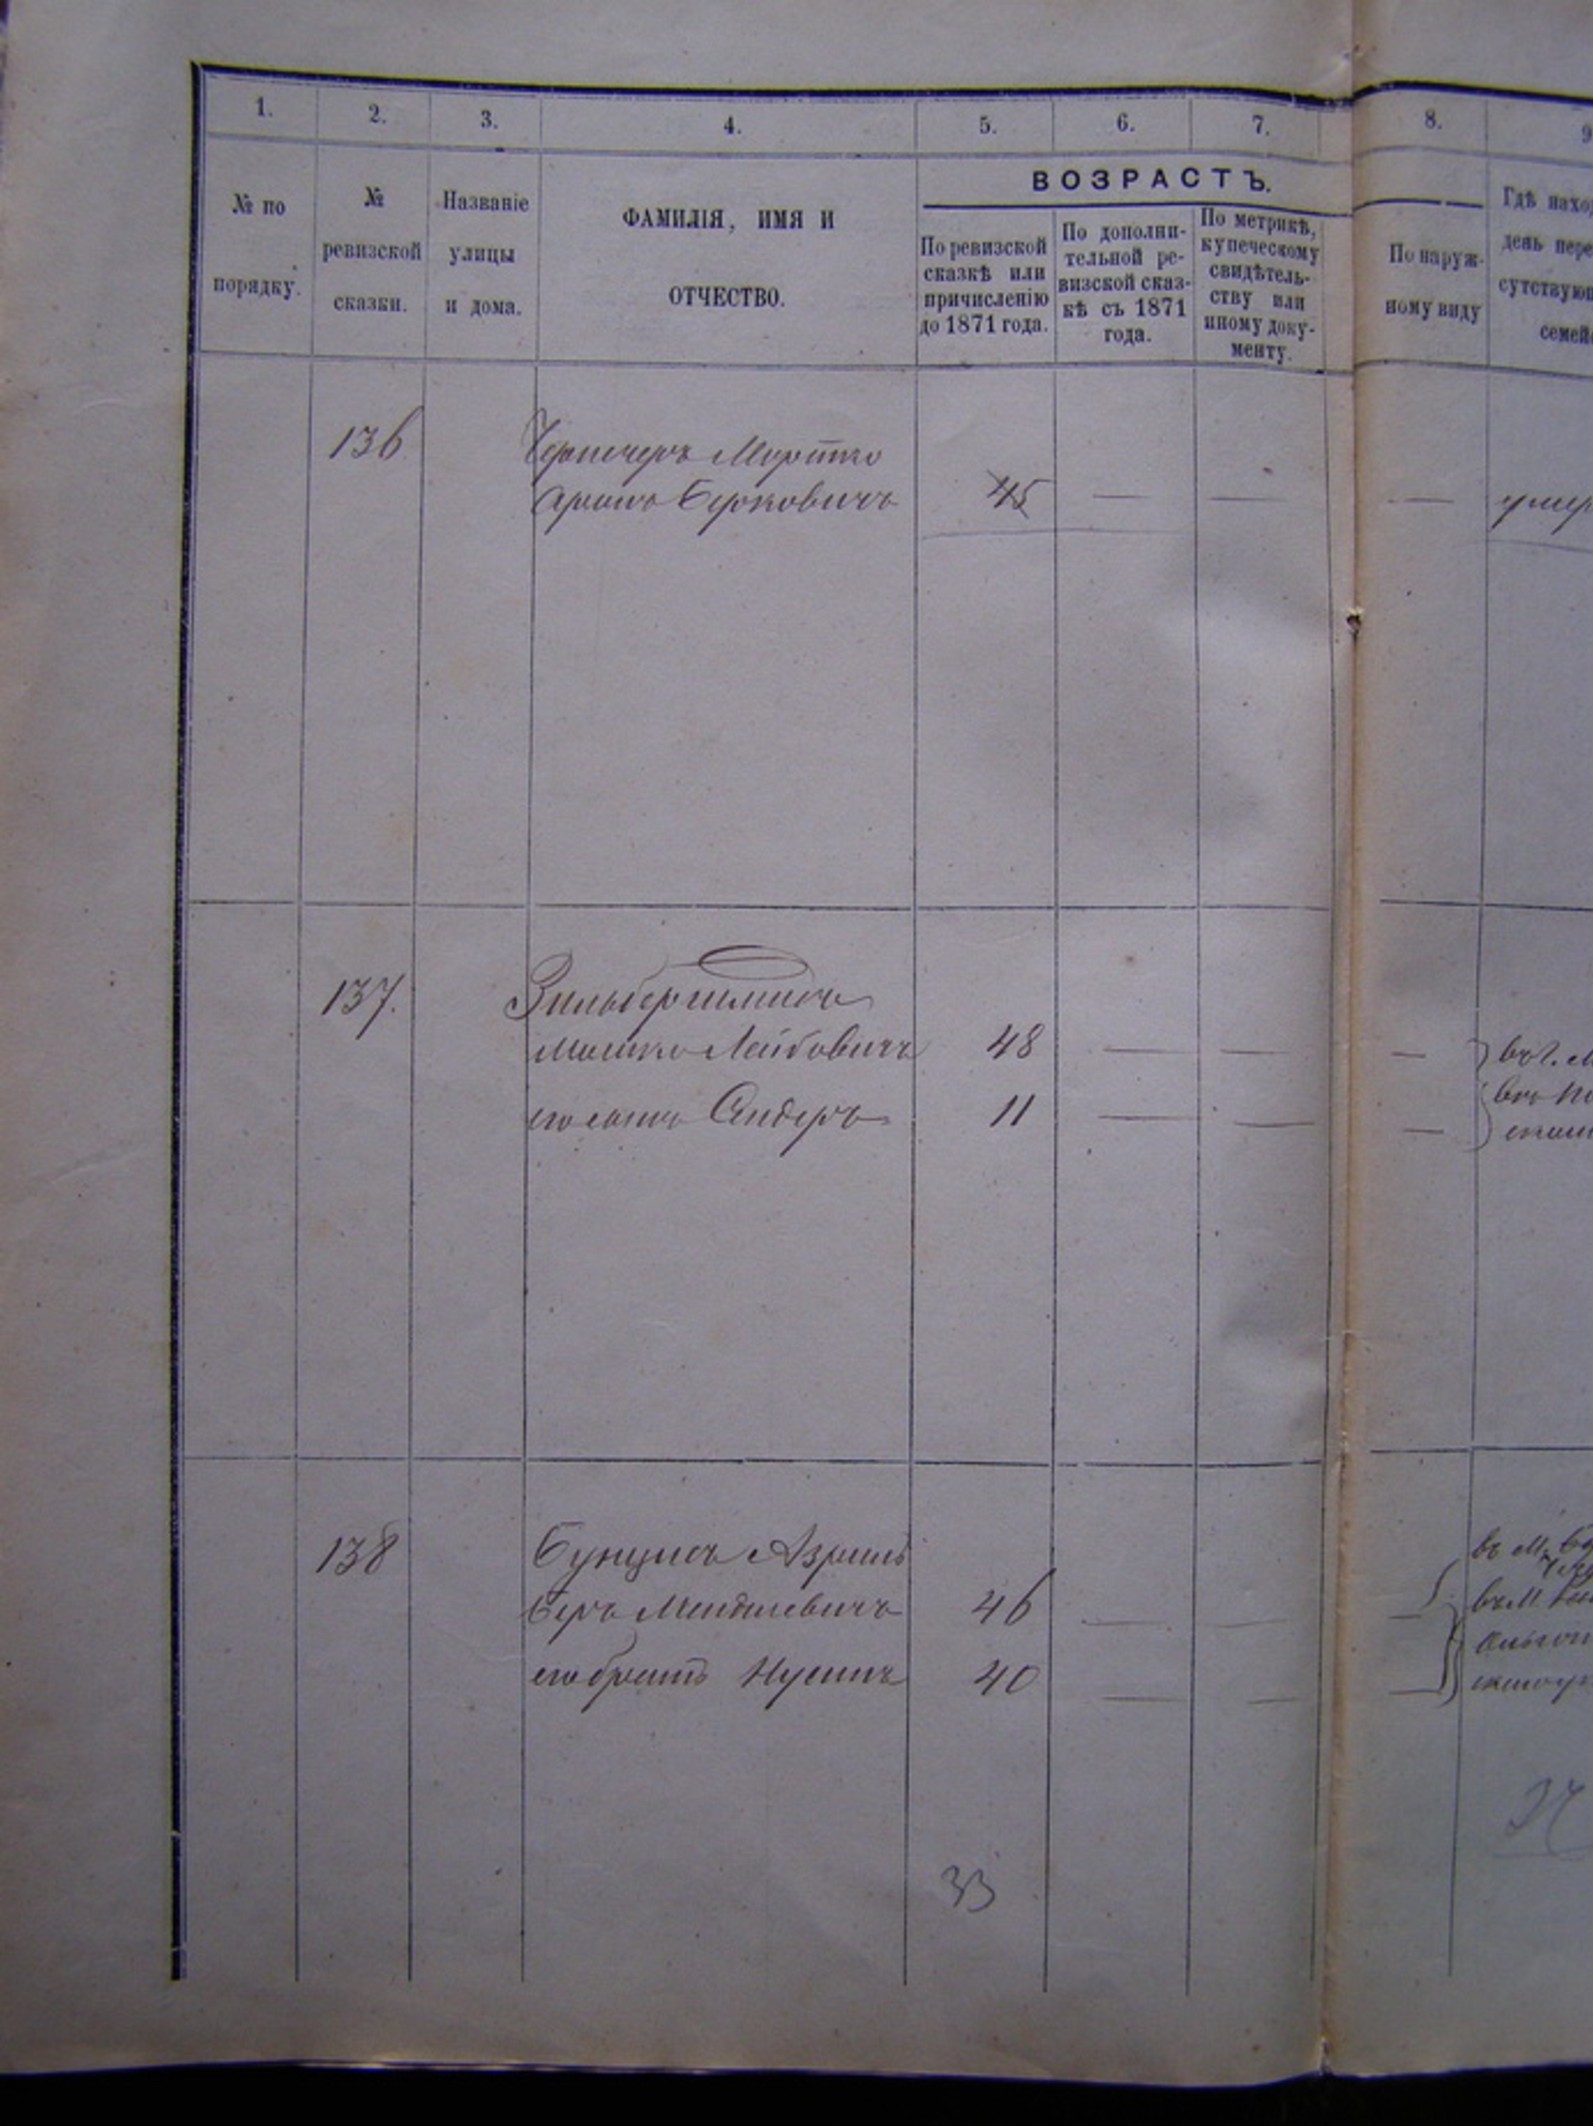 1. 2. 3. 4. 5. 6. 7. 8. 9
№ по порядку.
№ ревизской сказки.
Названіе улицы и дома.
ФАМИЛІЯ, ИМЯ И
ОТЧЕСТВО.
ВОЗРАСТЪ.
По ревизской
сказкѣ или
причисленію
до 1871 года.
По дополни-
тельной ре-
визской сказ-
кѣ съ 1871
года.
По метрикѣ,
купеческому
свидѣтель-
ству или
иному доку-
менту.
По наруж-
ному виду
Гдѣ нахо
день пере
сутствую
семей
136
Беркович 45 — — — умер
137.
Мошко Лейбовичъ 48 — — —
его сынъ Сендеръ 11 — — —
138
Бунцисъ Азриль
Беръ Менделевичъ 46 — — —
его братъ Нусинъ 40 — — —
33